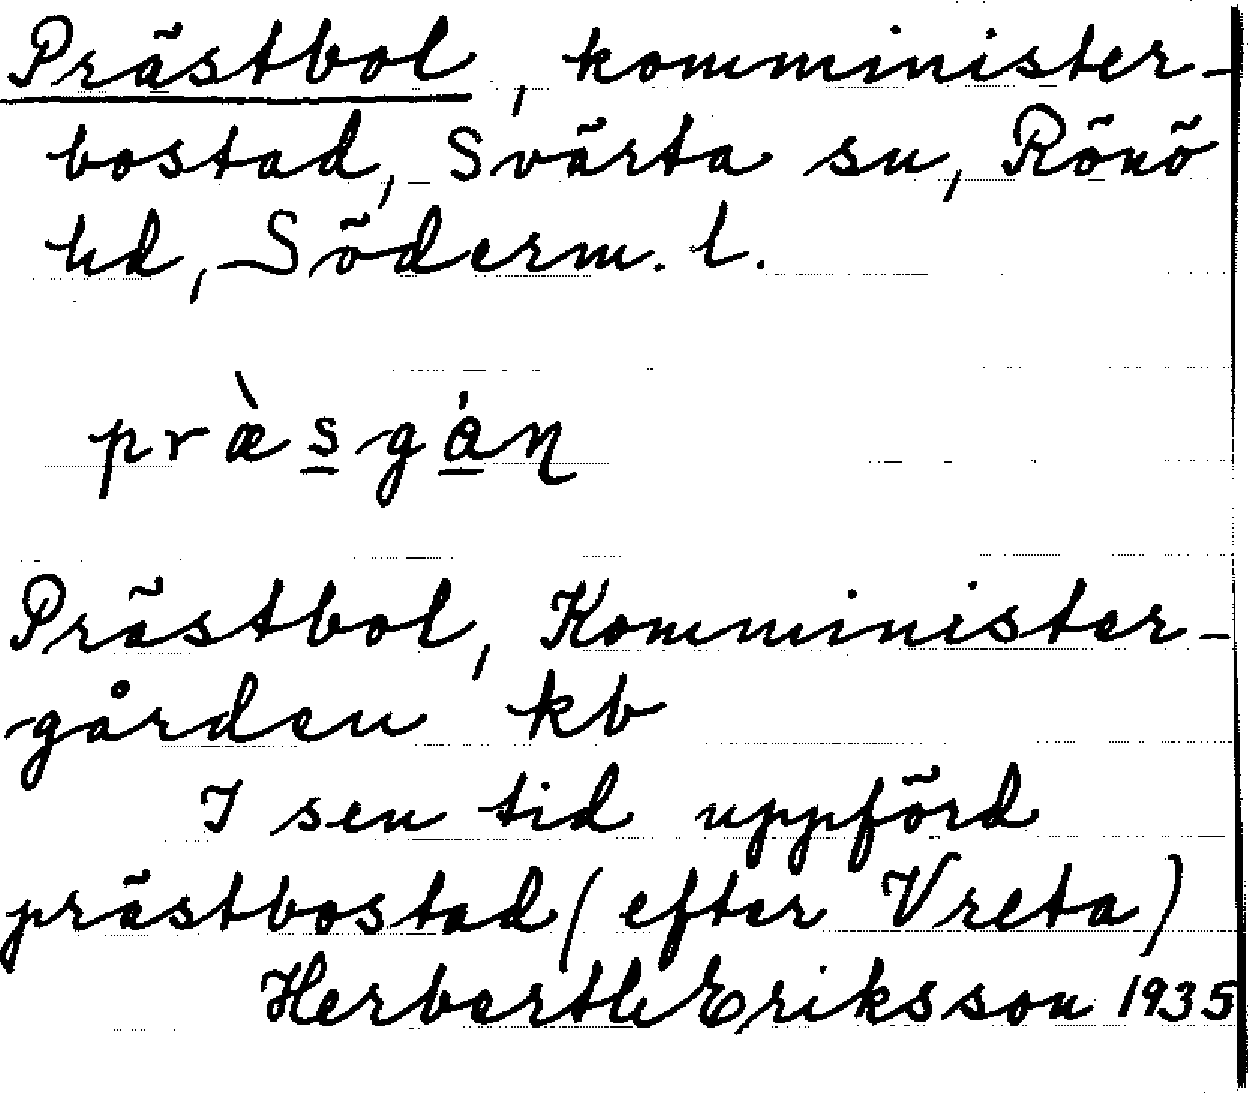 Prästbol, komminister-
bostad, Svärta sn, Rönö
hd, Söderm. l.
præ̀sgȧn
Prästbol, Kommister-
gården kb
I sen tid uppförd
prästbostad (efter Vreta)
Herbert Eriksson 1935